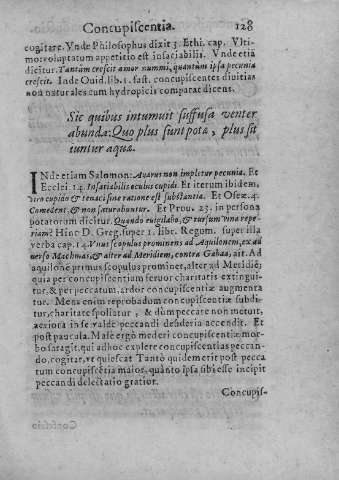 Concupiscentia. 128
cogitare. Vnde Philosophus dixit 3. Ethi. cap. Vlti-
mo: voluptatum appetitio est insaciabilis. Vnde etiã
dicitur. Tantùm crescit amor nummi, quantùm ipsa pecunia
crescit. Inde Ouid. lib. 1. fast. concupiscentes diuitias
non naturales cum hydropicis comparat dicens.
Sic quibus intumuit suffusa venter
abunda: Quo plus sunt potæ, plus sit
iuntur aquæ.
INde etiam Salomon: Auarus non impletur pecunia. Et
Eccles. 14. Insatiabilis oculus cupidi. Et iterum ibidem,
viro cupido & tenaci sine ratione est substantia. Et Oseæ 4.
Comedent, & non saturabuntur. Et Prou. 23. in persona
potatorum dicitur. Quando euigilabo, & rursum vina repe-
riam? Hinc D. Greg. super 1. libr. Regum. super illa
verba cap. 14. Vnus scopulus prominens ad Aquilonem, ex ad
uerso Machmas: & alter ad Meridiem, contra Gabaa, ait. Ad
aquilonem primus scopulus prominet, alter ad Meridiẽ;
quia per concupiscentiam feruor charitatis extingui-
tur, & per peccatum, ardor concupiscentiæ augmenta
tur. Mens enim reprobadum concupiscentiæ subdi-
tur, charitate spoliatur, & dùm peccare non metuit,
acriora in se valdè peccandi desideria accendit. Et
post paucula. Malè ergò mederi concupiscentiæ mor-
bo satagit, qui ad hoc explere concupiscentias peccan-
do, cogitat, vt quiescat. Tantò quidem erit post pecca
tum concupiscẽtia maior, quantò ipsa sibi esse incipit
peccandi delectatio gratior.
Concupis-